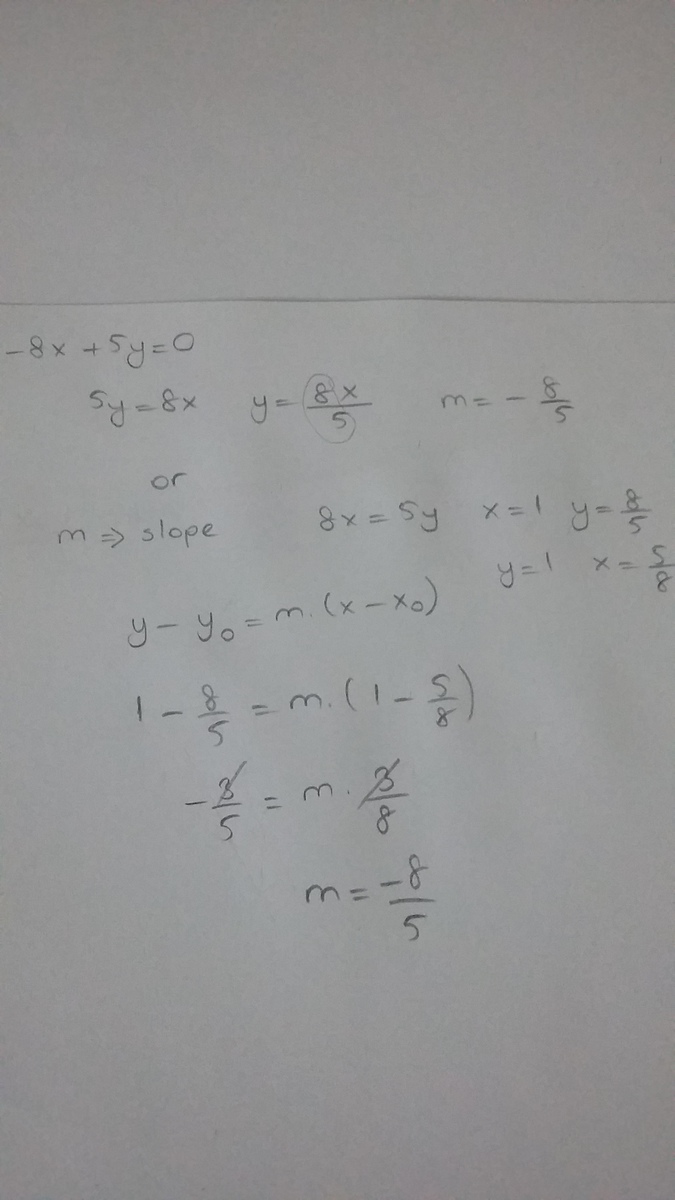 -8x + 5y = 0
5y = 8x y = 8x/5 m = - 8/5
or
m ⇒ slope 8x = 5y x = 1 y = 8/5
y = 1 x = 5/8
y - y₀ = m.(x - x₀)
1 - 8/5 = m.(1 - 5/8)
-3/5 = m. 3/8
m = -8/5